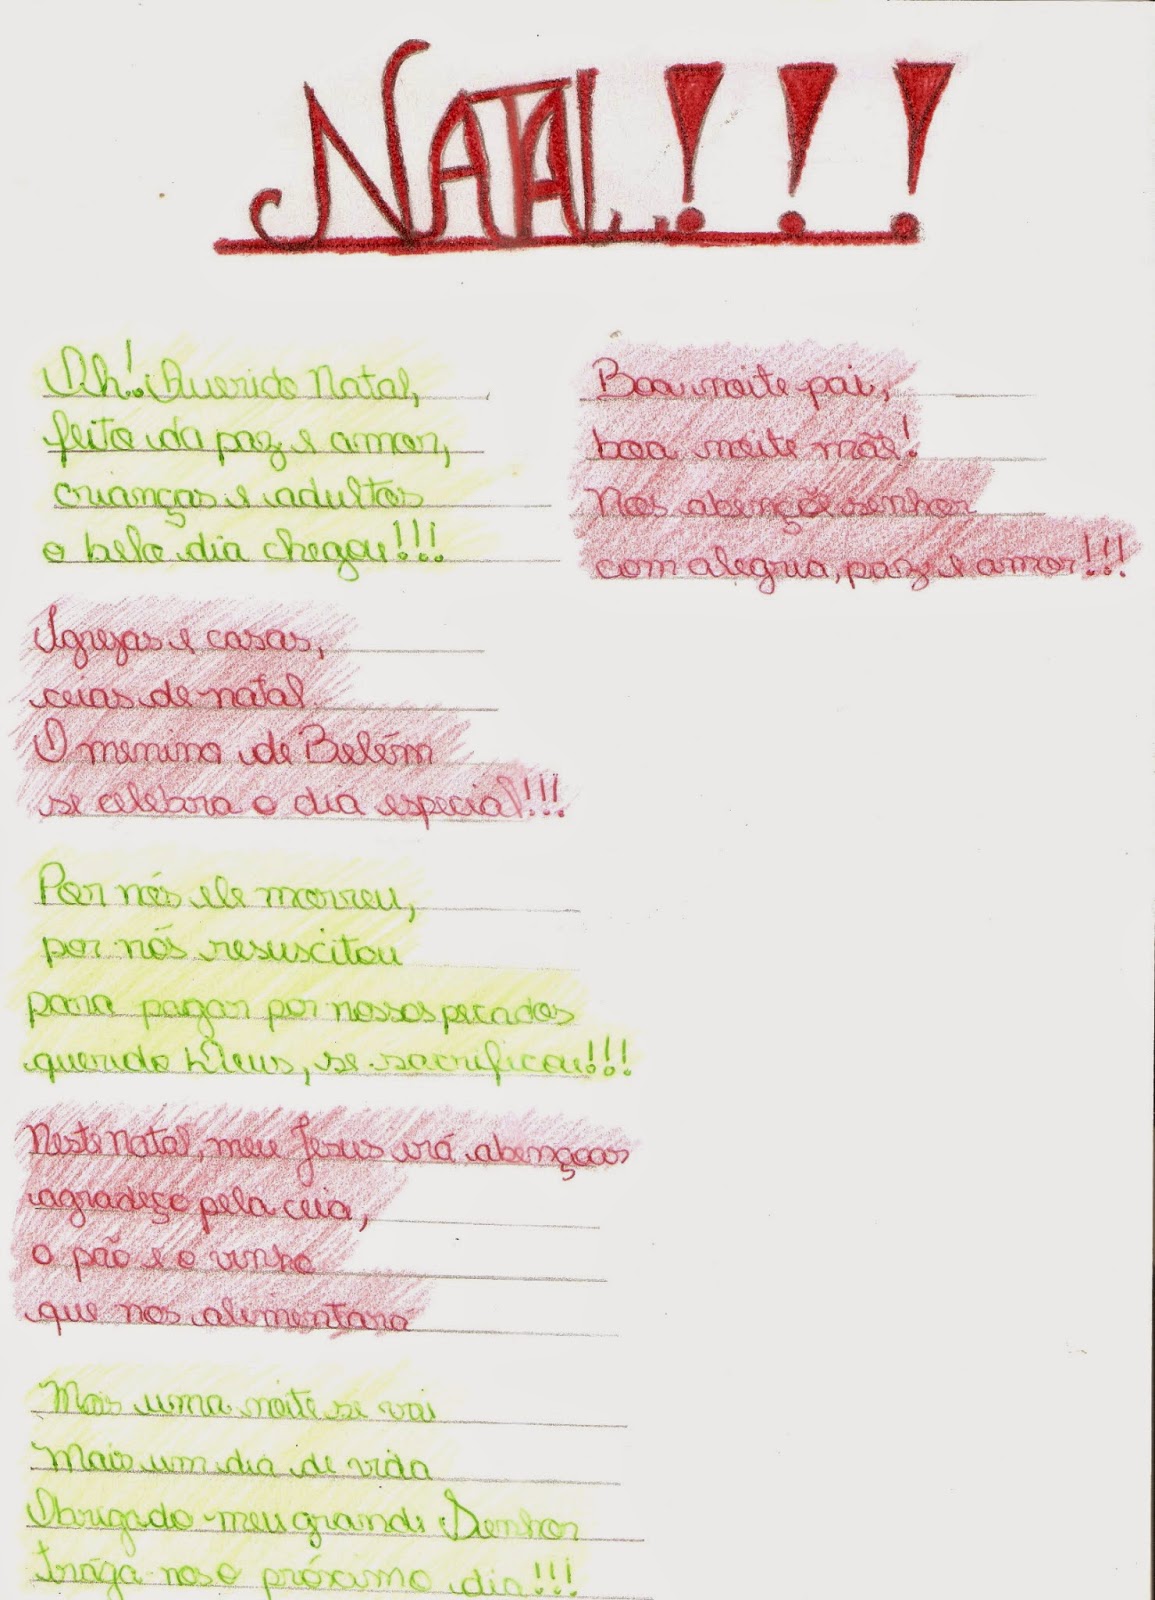 NATAL!!!
Oh! Querido Natal,
feito da paz e amor,
crianças e adultos
o belo dia chegou!!!
Igrejas e casas,
ceias de natal
O menino de Belém
se celebra o dia especial!!!
Por nós ele morreu,
por nós resuscitou
para pagar por nossos pecados
querido Deus, se sacrificou!!!
Neste Natal, meu Jesus irá abençoar
agradeço pela ceia,
o pão e o vinho
que nos alimentará
Mais uma noite se vai
Mais um dia de vida
Obrigado meu grande Senhor
Trága-nos o próximo dia!!!
Boa noite pai,
boa noite mãe!
Nos abençõe senhor
com alegria, paz e amor!!!